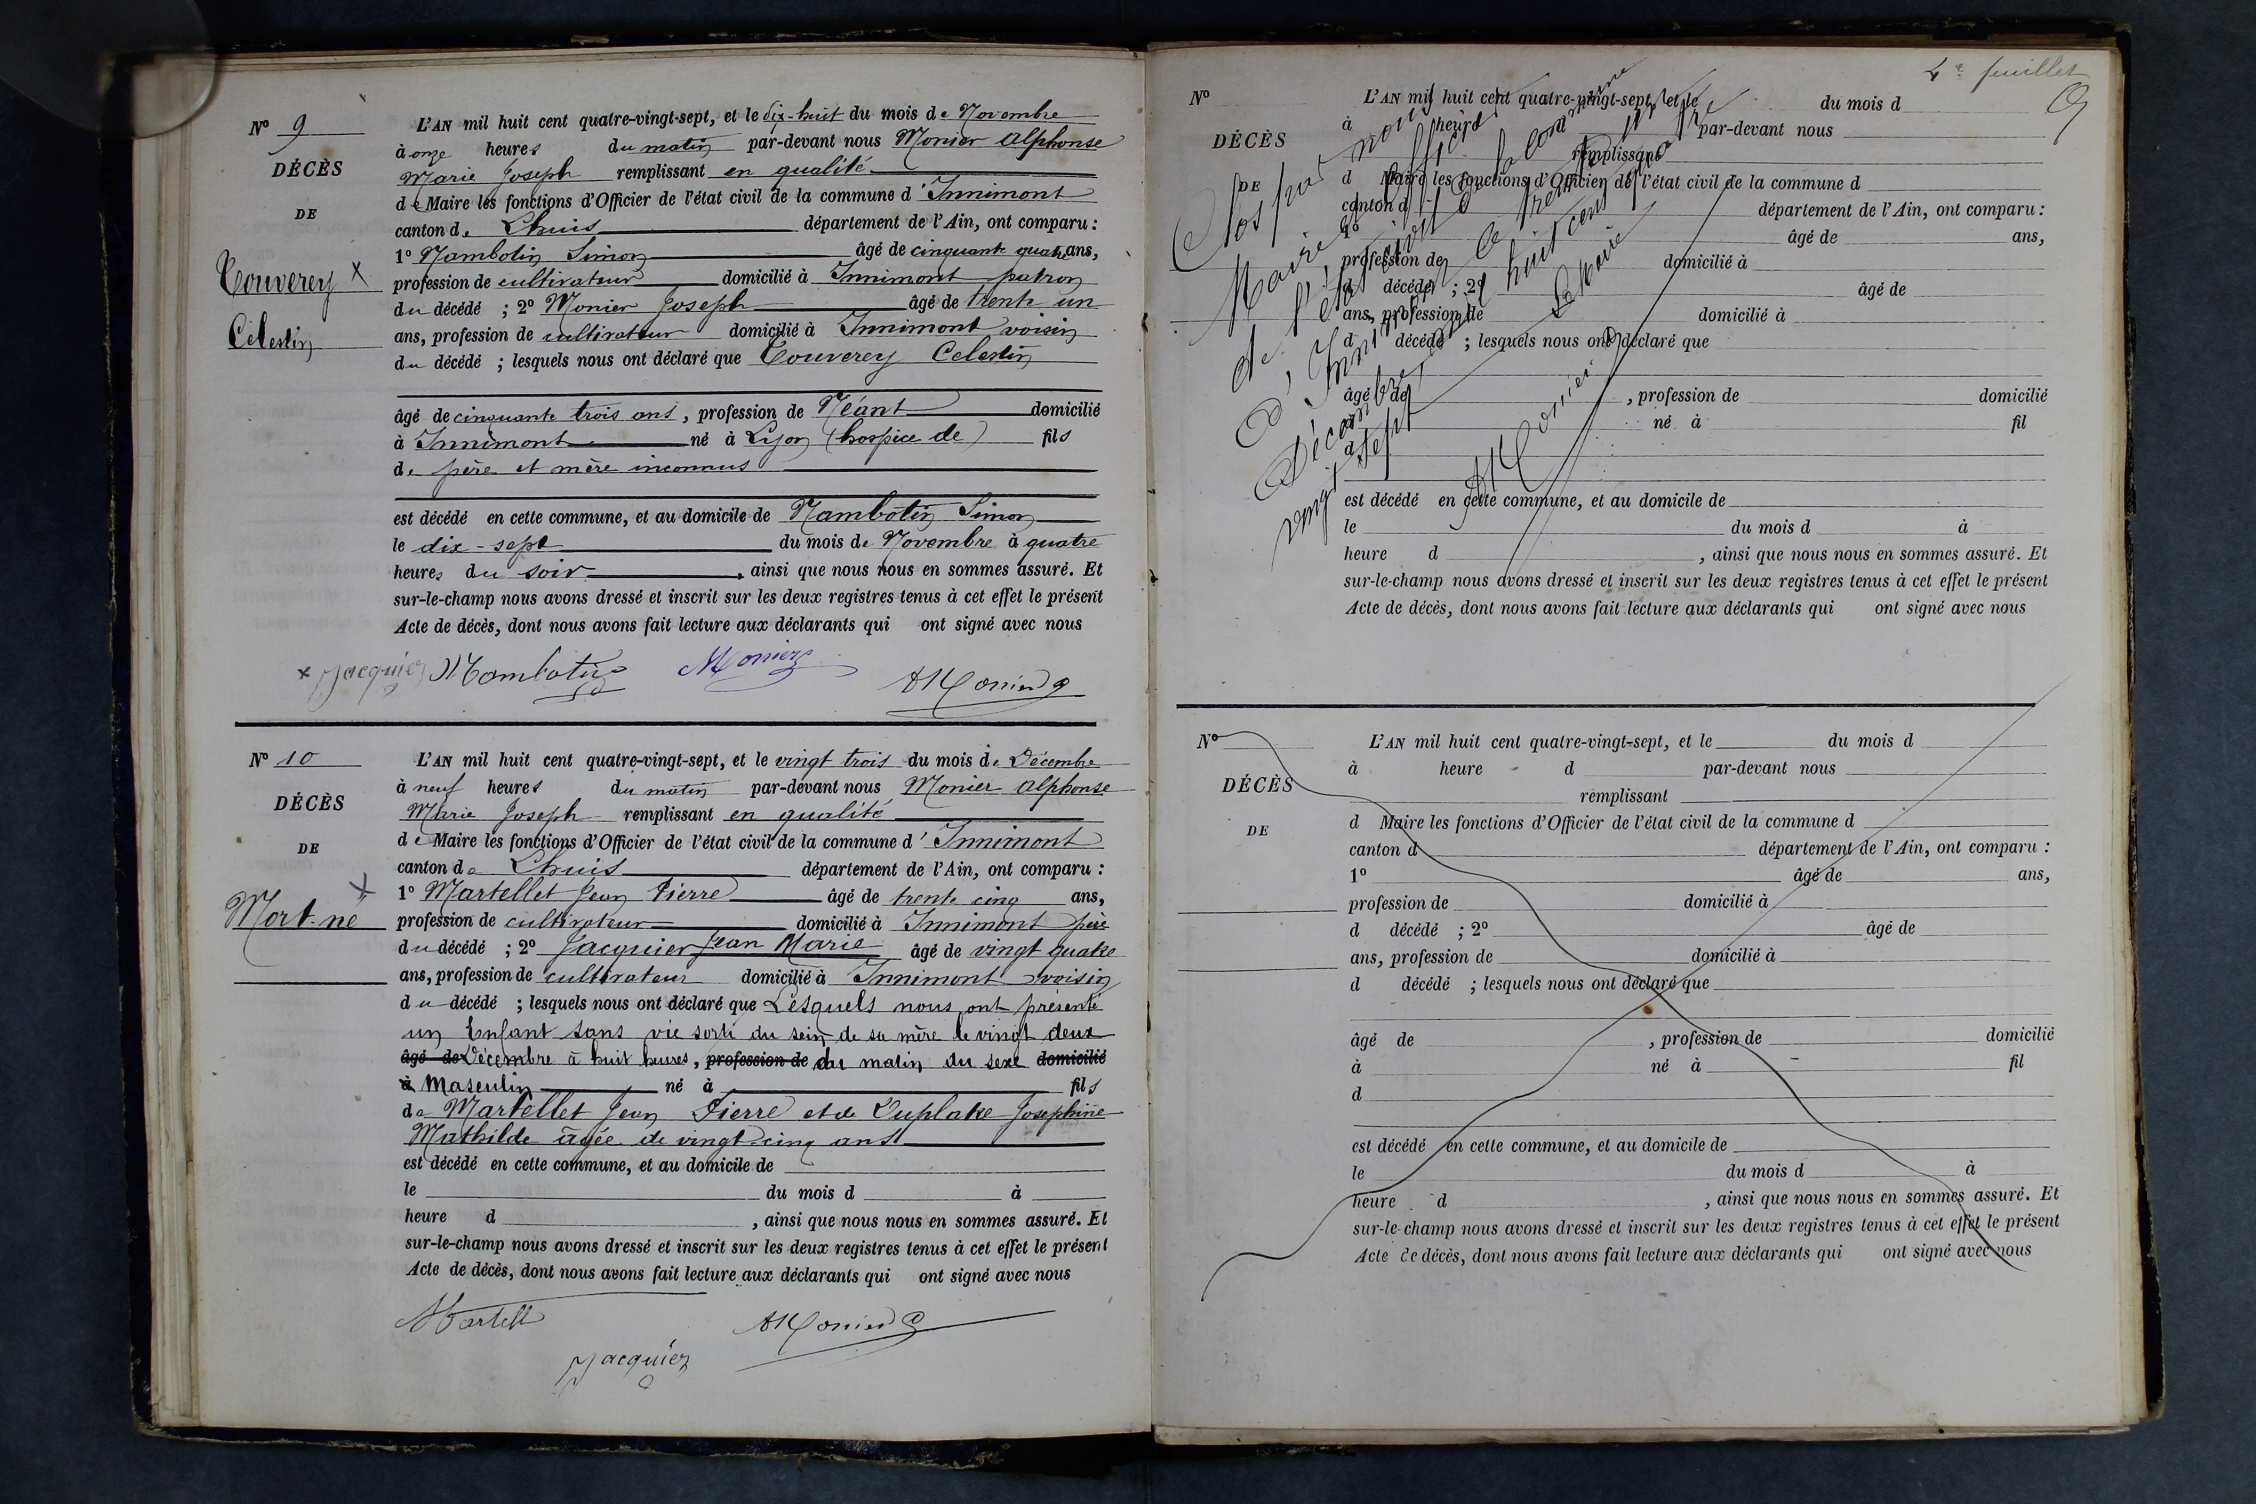 N° 9
DÉCÈS
DE
Couverey x
Célestin
L'AN mil huit cent quatre-vingt-sept, et le dix-huit du mois de Novembre
à onze heures du matin par-devant nous Monier Alphonse
Marie Joseph remplissant en qualité
de Maire les fonctions d'Officier de l'état civil de la commune d'Innimont
canton de Lhuis département de l'Ain, ont comparu :
1° Nambotin Simon âgé de cinquante quatre ans,
profession de cultivateur domicilié à Innimont patron
du décédé ; 2° Monier Joseph âgé de trente un
ans, profession de cultivateur domicilié à Innimont voisin
du décédé ; lesquels nous ont déclaré que Couverey Celestin
âgé de cinquante trois ans, profession de Néant domicilié
à Innimont né à Lyon (hospice de) fils
de père et mère inconnus
est décédé en cette commune, et au domicile de Nambotin Simon
le dix-sept du mois de Novembre à quatre
heures du soir, ainsi que nous nous en sommes assuré. Et
sur-le-champ nous avons dressé et inscrit sur les deux registres tenus à cet effet le présent
Acte de décès, dont nous avons fait lecture aux déclarants qui ont signé avec nous
x Jacquier Nambotin Monier AMonier
N° 10
DÉCÈS
DE
x
Mort-né
L'AN mil huit cent quatre-vingt-sept, et le vingt trois du mois de Décembre
à neuf heures du matin par-devant nous Monier Alphonse
Marie Joseph remplissant en qualité
de Maire les fonctions d'Officier de l'état civil de la commune d'Innimont
canton de Lhuis département de l'Ain, ont comparu :
1° Martellet Jean Pierre âgé de trente cinq ans,
profession de cultivateur domicilié à Innimont père
du décédé ; 2° Jacquier Jean Marie âgé de vingt quatre
ans, profession de cultivateur domicilié à Innimont voisin
du décédé ; lesquels nous ont déclaré que Lesquels nous ont présenté
un Enfant sans vie sorti du sein de sa mère le vingt deux
âgé de Décembre à huit heures, profession de du matin du sexe domicilié
à Masculin né à fils
de Martellet Jean Pierre et de Duplatre Josephine
Mathilde âgée de vingt-cinq ans
est décédé en cette commune, et au domicile de
le du mois d à
heure d , ainsi que nous nous en sommes assuré. Et
sur-le-champ nous avons dressé et inscrit sur les deux registres tenus à cet effet le présent
Acte de décès, dont nous avons fait lecture aux déclarants qui ont signé avec nous
Martell AMonier
Jacquier
4e feuillet
N°
DÉCÈS
DE
L'AN mil huit cent quatre-vingt-sept, et le du mois d
à heure d par-devant nous
remplissant
d Maire les fonctions d'Officier de l'état civil de la commune d
canton d département de l'Ain, ont comparu :
1° âgé de ans,
profession de domicilié à
d décédé ; 2° âgé de
ans, profession de domicilié à
d décédé ; lesquels nous ont déclaré que
âgé de , profession de domicilié
à né à fil
d
est décédé en cette commune, et au domicile de
le du mois d à
heure d , ainsi que nous nous en sommes assuré. Et
sur-le-champ nous avons dressé et inscrit sur les deux registres tenus à cet effet le présent
Acte de décès, dont nous avons fait lecture aux déclarants qui ont signé avec nous
Clos par nous
Maire officier
de l'état civil de la commune
d'Innimont ce trente un
Décembre mil huit cent quatre
vingt sept
Le Maire
AMonier
N°
DÉCÈS
DE
L'AN mil huit cent quatre-vingt-sept, et le du mois d
à heure d par-devant nous
remplissant
d Maire les fonctions d'Officier de l'état civil de la commune d
canton d département de l'Ain, ont comparu :
1° âgé de ans,
profession de domicilié à
d décédé ; 2° âgé de
ans, profession de domicilié à
d décédé ; lesquels nous ont déclaré que
âgé de , profession de domicilié
à né à fil
d
est décédé en cette commune, et au domicile de
le du mois d à
heure d , ainsi que nous nous en sommes assuré. Et
sur-le-champ nous avons dressé et inscrit sur les deux registres tenus à cet effet le présent
Acte de décès, dont nous avons fait lecture aux déclarants qui ont signé avec nous